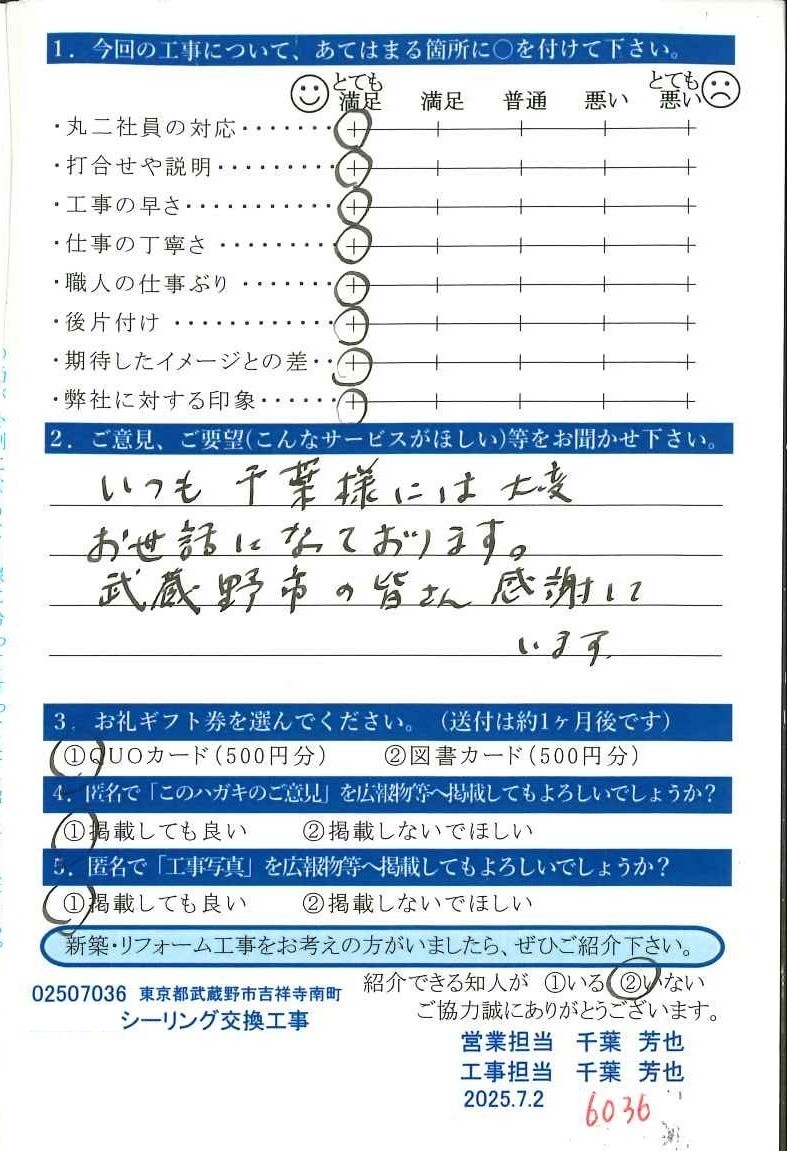 1. 今回の工事について、あてはまる箇所に○を付けて下さい。
とても満足 満足 普通 悪い とても悪い
・丸二社員の対応・・・・・・・
・打合せや説明・・・・・・・・・
・工事の早さ・・・・・・・・・・・
・仕事の丁寧さ・・・・・・・・・
・職人の仕事ぶり・・・・・・・・
・後片付け・・・・・・・・・・・・
・期待したイメージとの差・・
・弊社に対する印象・・・・・・
2. ご意見、ご要望(こんなサービスがほしい)等をお聞かせ下さい。
いつも千葉様には大変
お世話になっております。
武蔵野市の皆さん感謝して
います。
3. お礼ギフト券を選んでください。(送付は約1ヶ月後です)
①QUOカード(500円分) ②図書カード(500円分)
4. 匿名で「このハガキのご意見」を広報物等へ掲載してもよろしいでしょうか?
①掲載しても良い ②掲載しないでほしい
5. 匿名で「工事写真」を広報物等へ掲載してもよろしいでしょうか?
①掲載しても良い ②掲載しないでほしい
新築・リフォーム工事をお考えの方がいましたら、ぜひご紹介下さい。
紹介できる知人が ①いる ②いない
ご協力誠にありがとうございます。
02507036 東京都武蔵野市吉祥寺南町
シーリング交換工事
営業担当 千葉 芳也
工事担当 千葉 芳也
2025.7.2
6036